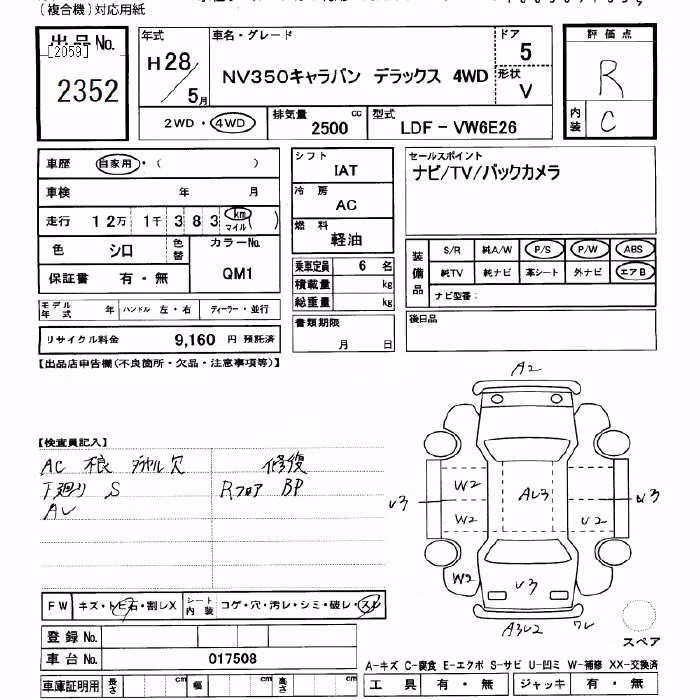 (複合機)対応用紙
出品No.
[2059]
2352
年式
H28/5月
車名・グレード
NV350キャラバン デラックス 4WD
ドア
5
形状
V
評価点
R
内装
C
2WD・4WD
排気量
2500 cc
型式
LDF-VW6E26
車歴 自家用・( )
車検 年 月
走行 12万 1千 383 km マイル
色 シロ 色替
カラーNo.
QM1
保証書 有・無
モデル年式 年 ハンドル 左・右 ディーラー・並行
リサイクル料金 9,160 円 預託済
シフト
IAT
冷房
AC
燃料
軽油
乗車定員 6 名
積載量 kg
総重量 kg
書類期限
月 日
セールスポイント
ナビ/TV/バックカメラ
装備品
S/R 純A/W P/S P/W ABS
純TV 純ナビ 革シート 外ナビ エアB
ナビ型番:
後日品
【出品店申告欄(不良箇所・欠品・注意事項等)】
【検査員記入】
AC 不良 ダイヤル欠
下廻り S
修復
Rフロア BP
FW キズ・トビ石・割レX シート内装 コゲ・穴・汚レ・シミ・破レ・スレ
登録No.
車台No. 017508
車庫証明用 長さ cm 幅 cm 高さ cm
A2
U3
W2
W2
W2
U2
U3
スペア
A-キズ C-腐食 E-エクボ S-サビ U-凹ミ W-補修 XX-交換済
工具 有・無 ジャッキ 有・無